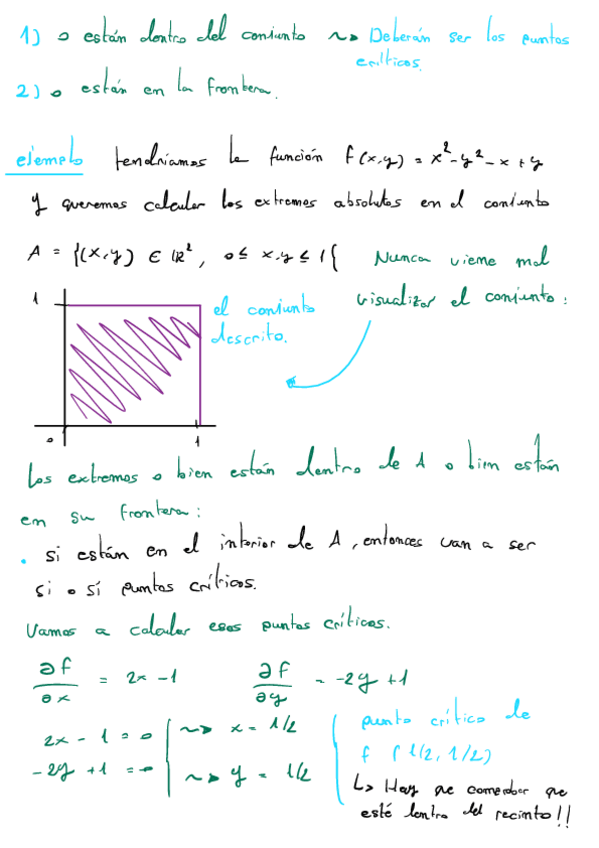 1) o están dentro del conjunto ~> Deberán ser los puntos
críticos.
2) o están en la frontera.
ejemplo tendríamos la función f(x,y) = x²-y²-x+y
y queremos calcular los extremos absolutos en el conjunto
A = {(x,y) ∈ ℝ², 0≤ x,y ≤ 1{ Nunca viene mal
visualizar el conjunto:
1
el conjunto
descrito.
0 1
Los extremos o bien están dentro de A o bien están
en su frontera:
• si están en el interior de A, entonces van a ser
si o sí puntos críticos.
Vamos a calcular esos puntos críticos.
∂f/∂x = 2x -1 ∂f/∂y = -2y +1
2x - 1 = 0 ~> x = 1/2
-2y +1 = 0 ~> y = 1/2
punto crítico de
f (1/2, 1/2)
↳ Hay que comprobar que
esté dentro del recinto!!